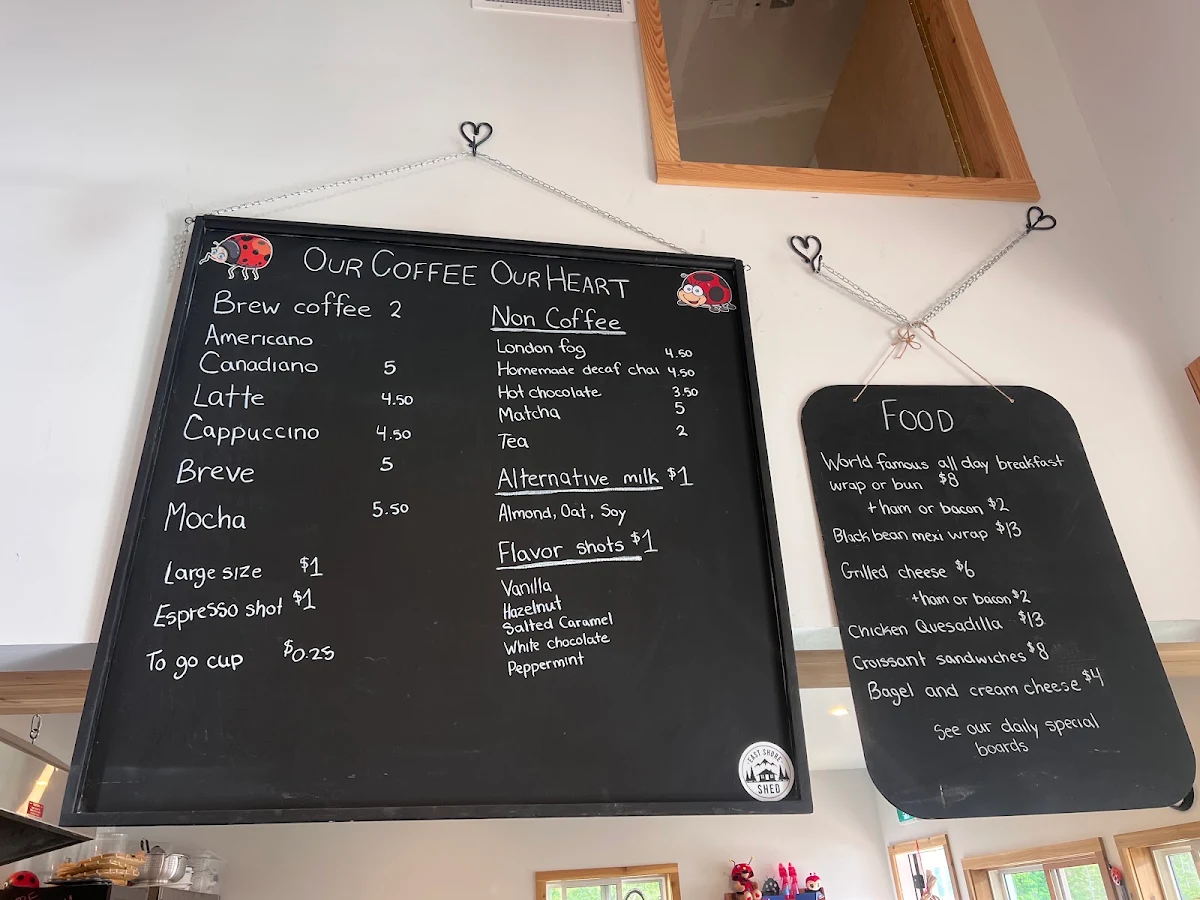 OUR COFFEE OUR HEART
Brew coffee 2
Americano
Canadiano 5
Latte 4.50
Cappuccino 4.50
Breve 5
Mocha 5.50
Large size $1
Espresso shot $1
To go cup $0.25
Non Coffee
London fog 4.50
Homemade decaf chai 4.50
Hot chocolate 3.50
Matcha 5
Tea 2
Alternative milk $1
Almond, Oat, Soy
Flavor shots $1
Vanilla
Hazelnut
Salted Caramel
White chocolate
Peppermint
EAST SHORE
SHED
FOOD
World famous all day breakfast
wrap or bun $8
+ham or bacon $2
Black bean mexi wrap $13
Grilled cheese $6
+ham or bacon $2
Chicken Quesadilla $13
Croissant sandwiches $8
Bagel and cream cheese $4
See our daily special
boards